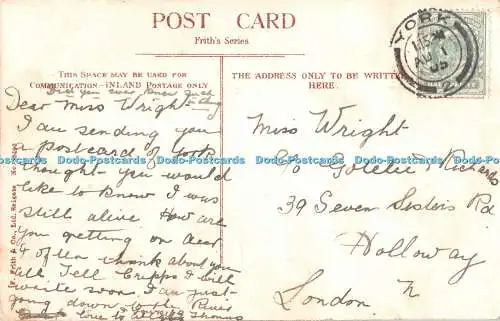 POST CARD
Frith's Series
THIS SPACE MAY BE USED FOR
COMMUNICATION—INLAND POSTAGE ONLY
THE ADDRESS ONLY TO BE WRITTEN
HERE.
YORK
AU 1
05
Did you ever know such
Dear Miss Wright
I am sending you
a postcard of York
thought you would
like to know I was
still alive How are
you getting on dear
I often think about you
all Tell Cripps I will
write soon I am just
going down to the River
love to
Thomas
Miss Wright
c/o & Richards
39 Seven Sisters Rd
Holloway
London N
F. Frith & Co., Ltd. Reigate.
Dodo-Postcards Dodo-Postcards Dodo-Postcards Dodo-Postcards Dodo-Postcards